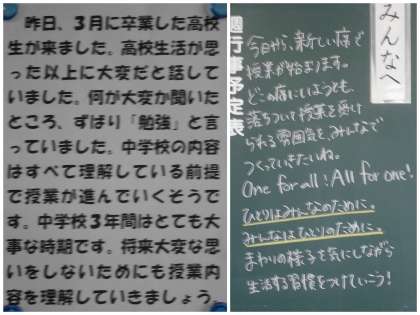 昨日、3月に卒業した高校
生が来ました。高校生活が思
った以上に大変だと話して
いました。何が大変か聞いた
ところ、ずばり「勉強」と言
っていました。中学校の内容
はすべて理解している前提
で授業が進んでいくそうで
す。中学校3年間はとても大
事な時期です。将来大変な思
いをしないためにも授業内
容を理解していきましょう。
みんなへ
行事予定表
今日から、新しい席で
授業が始まります。
どこの席にいようとも、
落ちついて授業を受け
られる雰囲気を、みんなで
つくっていきたいね。
One for all! All for one!
ひとりはみんなのために。
みんなはひとりのために。
まわりの様子を気にしながら
生活する習慣をつけていこう!